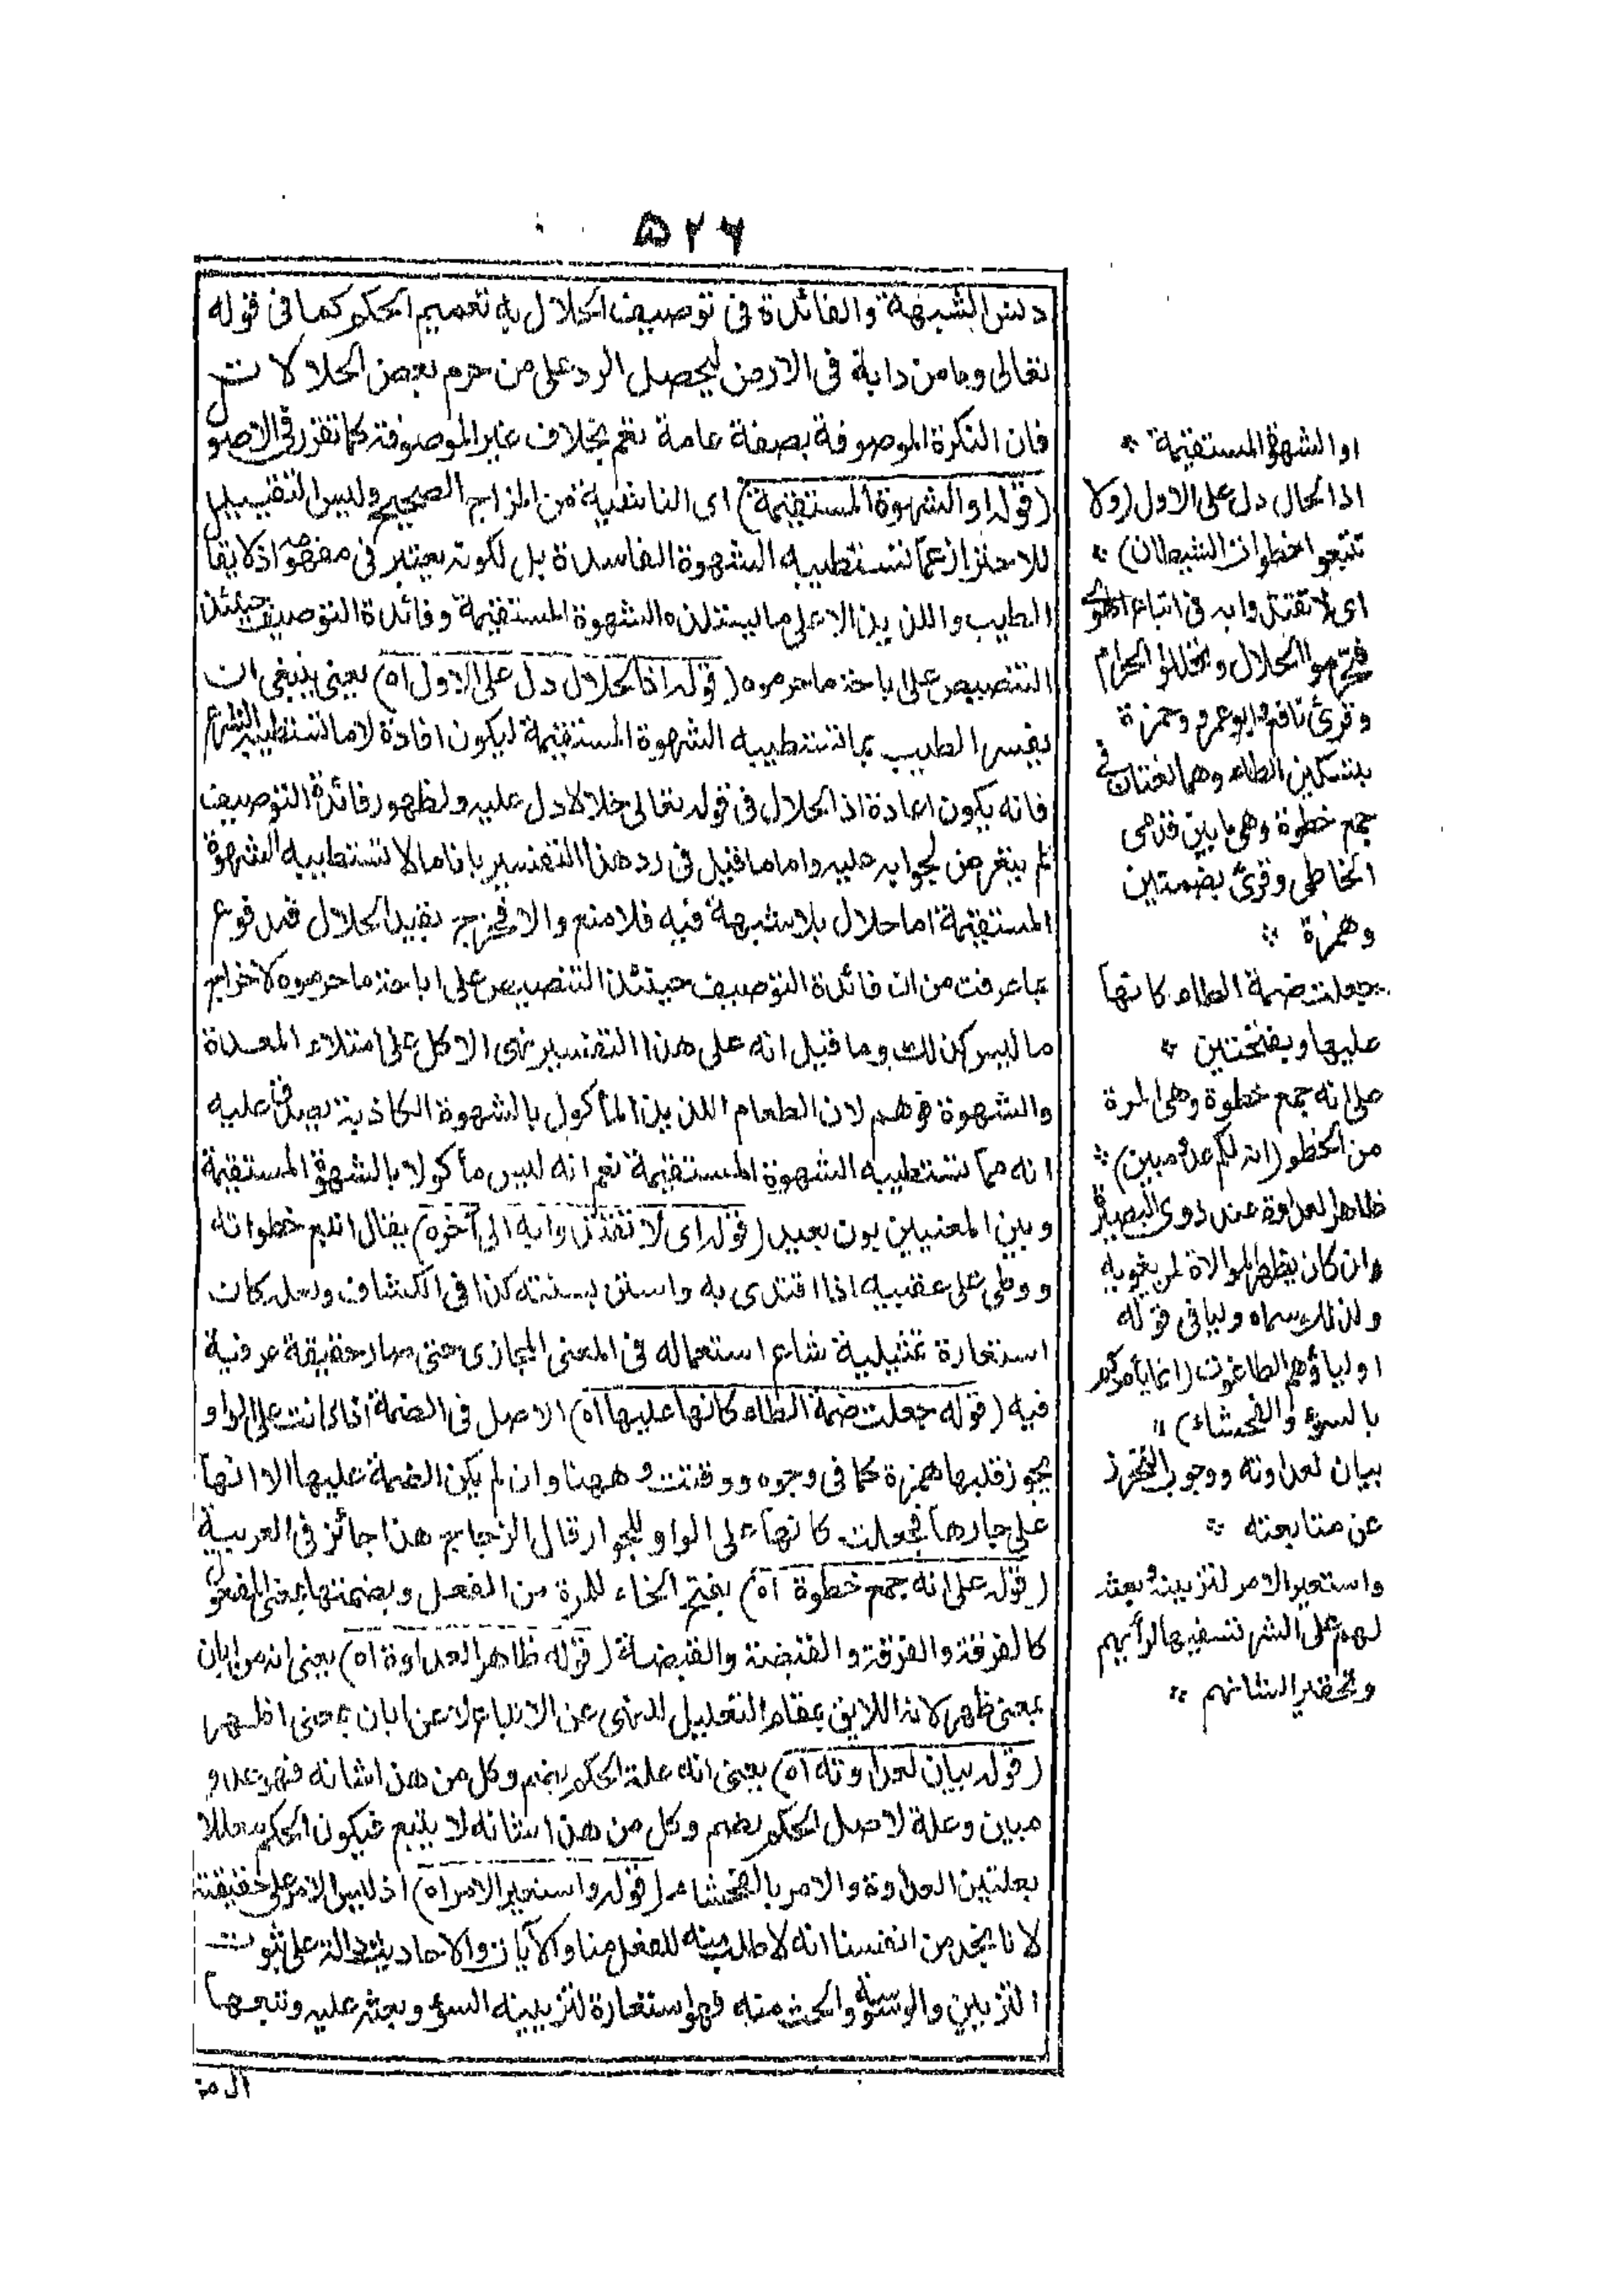 ۵۲۶
دنس الشبهة والفائدة فى توصيف الحلال به تعميم الحكم كما فى قوله
تعالى وما من دابة فى الارض ليحصل الرد على من حرم بعض الحلالات
فان النكرة الموصوفة بصفة عامة تعم بخلاف غير الموصوفة كما تقرر فى الاصول
(قوله او الشهوة المستقيمة) اى الناشئة من المزاج الصحيح وليس التقييد
للاحتراز عما تستطيبه الشهوة الفاسدة بل لكونه يعتبر فى مفهومه اذ لا يقال
الطيب واللذيذ الا على ما يستلذه الشهوة المستقيمة وفائدة التوصيف حينئذ
التنصيص على اباحة ما حرموه (قوله اذ الحلال دل على الاول اه) يعنى ينبغى ان
يفسر الطيب بما تستطيبه الشهوة المستقيمة ليكون افادة لا ما تستطيبه الشرع
فانه يكون اعادة اذ الحلال فى قوله تعالى حلالا دل عليه ولظهور فائدة التوصيف
لم يتعرض لجوابه عليه واما ما قيل فى رد هذا التفسير بانا ما لا تستطيبه الشهوة
المستقيمة اما حلال بلا شبهة فيه فلا منع والا فخرج بقيد الحلال فمدفوع
بما عرفت من ان فائدة التوصيف حينئذ التنصيص على اباحة ما حرموه لاخراج
ما ليس كذلك وما قيل انه على هذا التفسير نهى الاكل على امتلاء المعدة
والشهوة فوهم لان الطعام اللذيذ المأكول بالشهوة الكاذبة يصدق عليه
انه مما تستطيبه الشهوة المستقيمة نعم انه ليس مأكولا بالشهوة المستقيمة
وبين المعنيين بون بعيد (قوله اى لا تقتدوا به الى آخره) يقال اتبع خطواته
ووطئ على عقبيه اذا اقتدى به واستن بسنته كذا فى الكشاف وبعد كان
استعارة تمثيلية شاع استعماله فى المعنى المجازى حتى صار حقيقة عرفية
فيه (قوله جعلت ضمة الطاء كانها عليها اه) الاصل فى الضمة اذا كانت على الواو
يجوز قلبها همزة كما فى وجوه ووقتت وههنا وان لم يكن الضمة عليها الا انها
على جارها فجعلت كانها على الواو للجوار قال الزجاج هذا جائز فى العربية
(قوله على انه جمع خطوة اه) بفتح الخاء للمرة من الفعل وبضمتها بمعنى المفعول
كالغرفة والغرفة والقبضة والقبضة (قوله ظاهر العداوة اه) يعنى انه من ابان
بمعنى ظهر لانه اللايق بمقام التعليل للنهى عن الاتباع لا عن ابان بمعنى اظهر
(قوله بيان لعداوته اه) يعنى انه علة الحكم بضم وكل من هذا شانه فهو عدو
مبين وعلة لاصل الحكم بضم وكل من هذا شانه لا يتبع فيكون الحكم معللا
بعلتين العداوة والامر بالفحشاء (قوله واستعير الامر اه) اذ ليس الامر على حقيقته
لانا نجد من انفسنا انه لا طلب منه للفعل منا والآيات والاحاديث دالة على ثبوت
التزيين والوسوسة والحث منه فهو استعارة لتزيينه السوء وبعثه عليه وتتبعها
او الشهوة المستقيمة
اذ الحلال دل على الاول (ولا
تتبعوا خطوات الشيطان)
اى لا تقتدوا به فى اتباع الهوى
فتحرموا الحلال وتحللوا الحرام
وقرئ نافع وابو عمرو وحمزة
بتسكين الطاء وهما لغتان فى
جمع خطوة وهى ما بين قدمى
الخاطى وقرئ بضمتين
وهمزة
جعلت ضمة الطاء كانها
عليها وبفتحتين
على انه جمع خطوة وهى المرة
من الخطو (انه لكم عدو مبين)
ظاهر العداوة عند ذوى البصيرة
وان كان يظهر الموالاة لمن يغويه
ولذلك سماه وليا فى قوله
اولياؤهم الطاغوت (انما يأمركم
بالسوء والفحشاء)
بيان لعداوته ووجوب التحرز
عن متابعته
واستعير الامر لتزيينه وبعثه
لهم على الشر تسفيها لرأيهم
وتحقيرا لشانهم